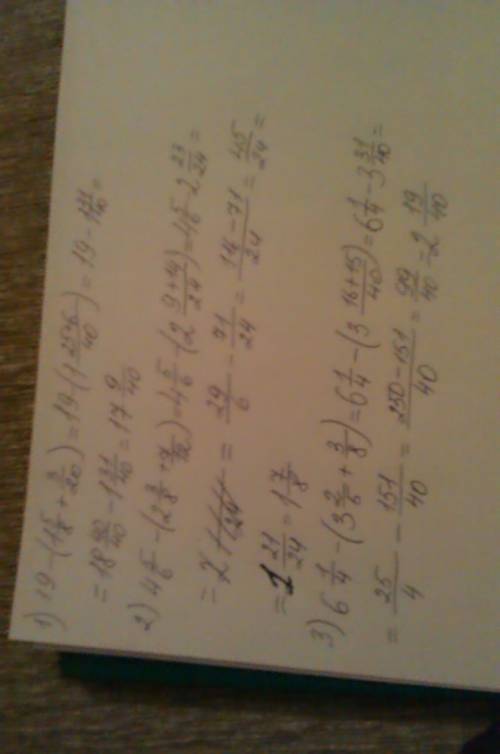 1) 19 - (1 5/8 + 3/20) = 19 - (1 25+6/40) = 19 - 1 31/40 =
= 18 40/40 - 1 31/40 = 17 9/40
2) 4 5/6 - (2 3/8 + 7/12) = 4 5/6 - (2 9+14/24) = 4 5/6 - 2 23/24 =
= 29/6 - 71/24 = 116-71/24 = 45/24 =
= 1 21/24 = 1 7/8
3) 6 1/4 - (3 2/5 + 3/8) = 6 1/4 - (3 16+15/40) = 6 1/4 - 3 31/40 =
= 25/4 - 151/40 = 250-151/40 = 99/40 = 2 19/40